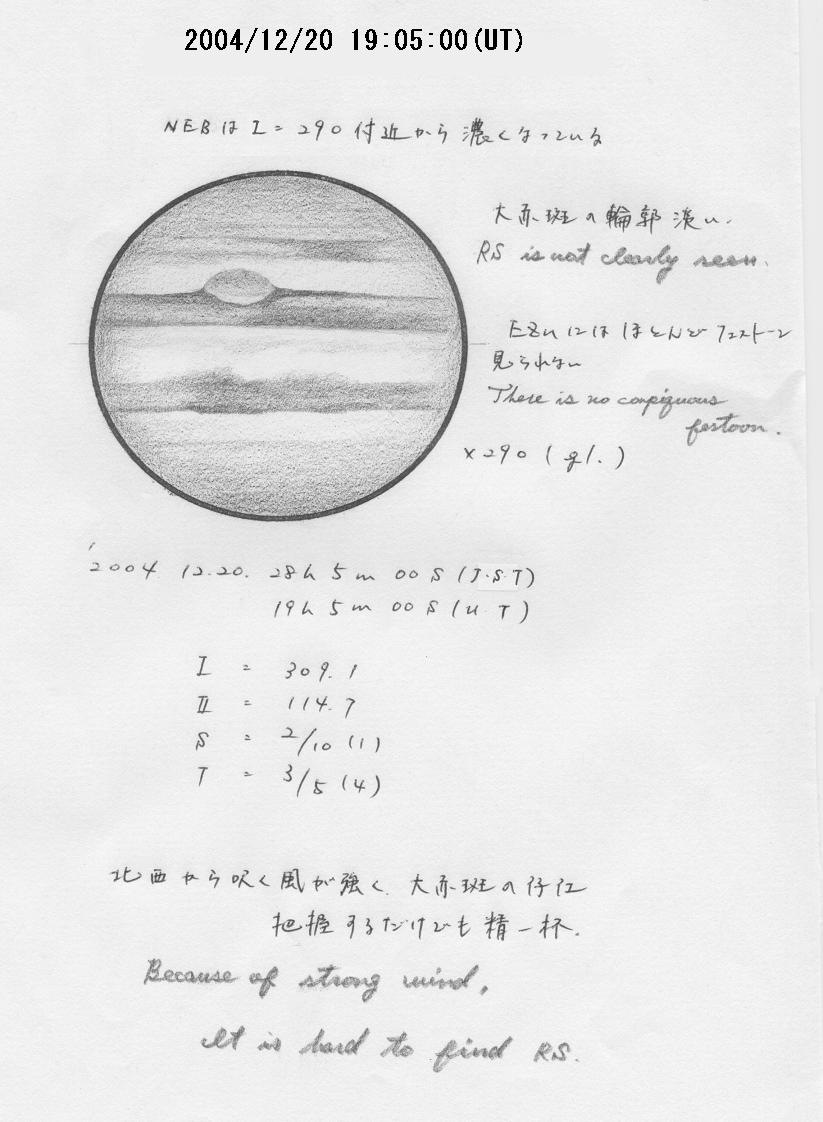 2004/12/20 19:05:00(UT)
NEBはI=290付近から濃くなっている
大赤斑の輪郭淡い.
RS is not clearly seen.
EZnにはほとんどフェストーン
見られない
There is no conpiguous
festoon.
×290 (gl.)
'2004 12.20. 28h 5m 00S (J.S.T)
19h 5m 00S (U.T)
I = 309.1
II = 114.7
S = 2/10 (1)
T = 3/5 (4)
北西から吹く風が強く、大赤斑の存在
把握するだけでも精一杯.
Because of strong wind,
It is hard to find RS.